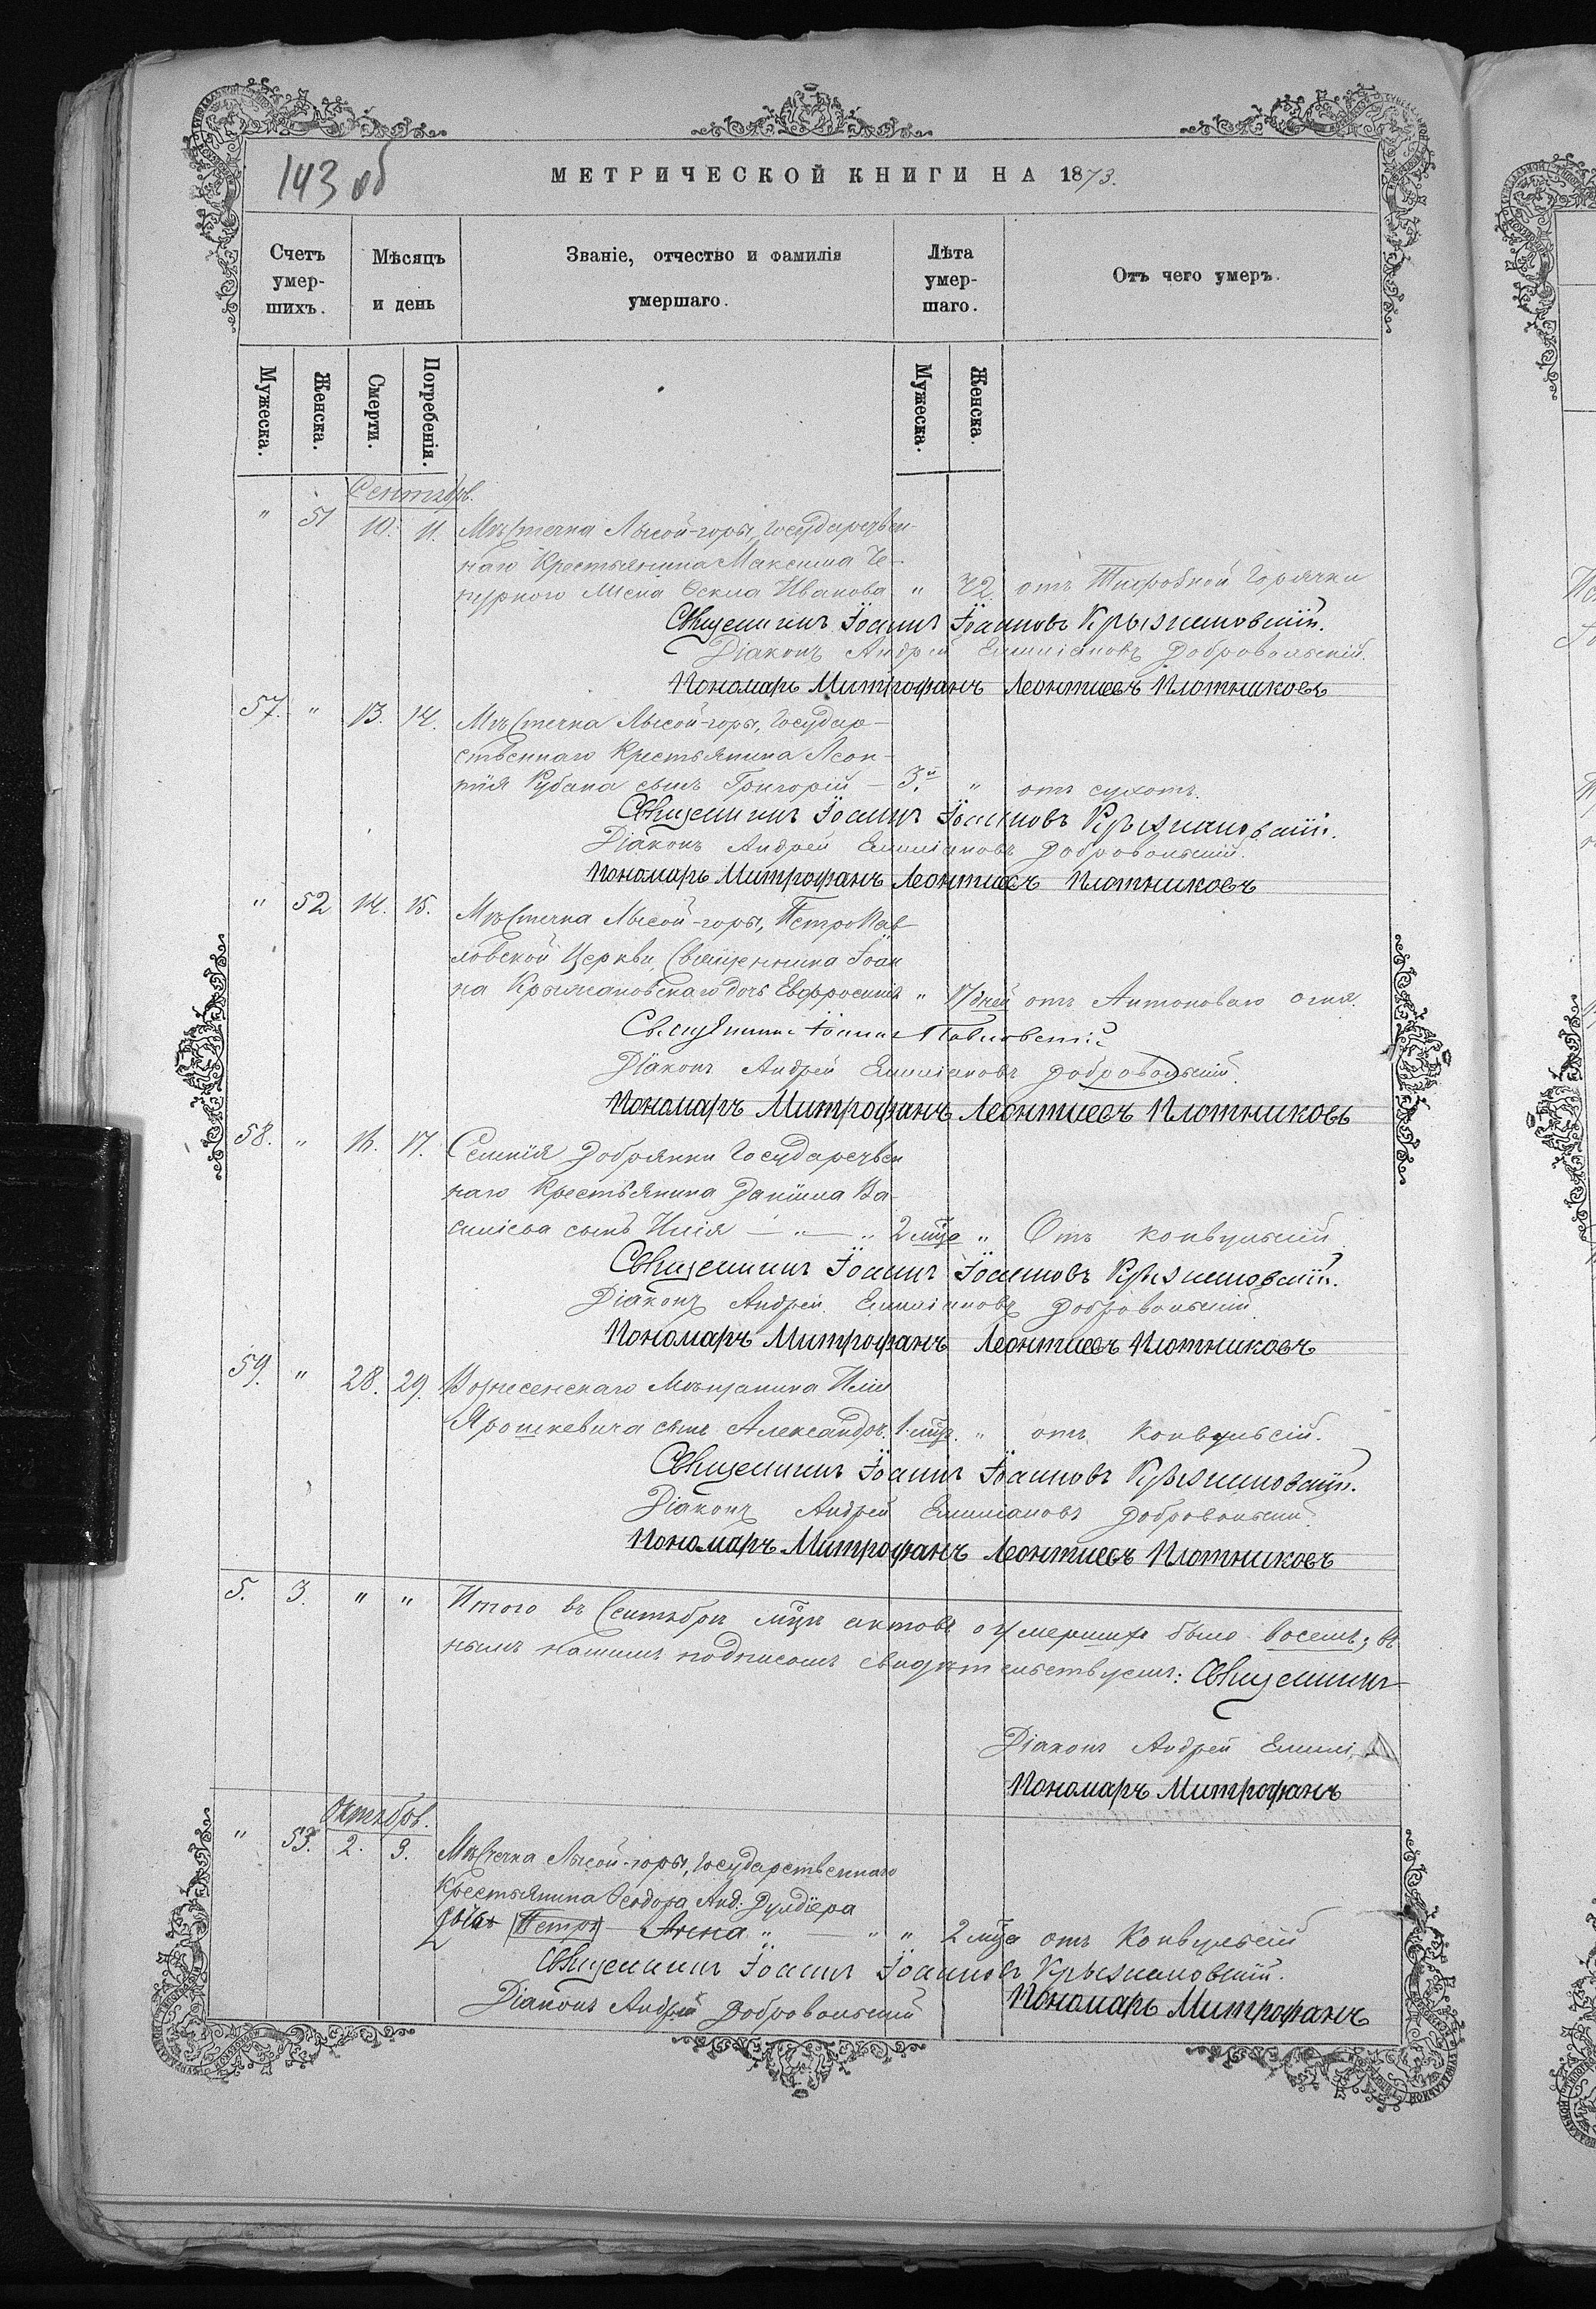 143 об
МЕТРИЧЕСКОЙ КНИГИ НА 1873.
Счетъ умер-шихъ.
Мѣсяцъ и день
Званіе, отчество и фамилія умершаго.
Лѣта умер-шаго.
Отъ чего умеръ.
Мужеска.
Женска.
Смерти.
Погребенія.
Мужеска.
Женска.
Сентябрь.
" 51 10. 11. Мѣстечка Лысой-горы, Государствен-
наго Крестьянина Максима Че-
пурного жена Іоанова " 72 отъ Тифозной Горячки
Священникъ Іоаннъ Іоанновъ Крыжановскій.
Діаконъ Андрей Емиліановъ Добровольскій.
Пономарь Митрофанъ Леонтиевъ Плотниковъ
57. " 13. 14. Мѣстечка Лысой-горы, Государ-
ственнаго Крестьянина Леон-
тія Рубана сынъ Григорій — 3. " отъ сухотъ.
Священникъ Іоаннъ Іоанновъ Крыжановскій.
Діаконъ Андрей Емиліановъ Добровольскій.
Пономарь Митрофанъ Леонтиевъ Плотниковъ
" 52 14. 15. Мѣстечка Лысой-горы, ПетроПав
ловской Церкви, Священника Іоан
на Крыжановскаго дочь Евфросинія " 17 дней отъ Антоноваго огня.
Священникъ Іоаннъ Павловскій
Діаконъ Андрей Емиліановъ Добровольскій.
Пономарь Митрофанъ Леонтиевъ Плотниковъ
58. " 16. 17. Селенія Добрянки Государствен
наго Крестьянина Даніила Ва-
силіева сынъ Илія — " — " 2 м-ца " Отъ конвульсій
Священникъ Іоаннъ Іоанновъ Крыжановскій.
Діаконъ Андрей Емиліановъ Добровольскій
Пономарь Митрофанъ Леонтиевъ Плотниковъ
59. " 28. 29. Вознесенскаго Мѣщанина Иліи
Ярошкевича сынъ Александръ. 1 м-цъ. " отъ Конвульсій.
Священникъ Іоаннъ Іоанновъ Крыжановскій.
Діаконъ Андрей Емиліановъ Добровольскій
Пономарь Митрофанъ Леонтиевъ Плотниковъ
5. 3. " " Итого въ Сентябрѣ м-цѣ актовъ о умершихъ было восемь; въ
нымъ нашимъ подписомъ свидѣтельствуемъ: Священникъ
Діаконъ Андрей Емилі
Пономарь Митрофанъ
Октябрь.
" 53. 2. 3. Мѣстечка Лысой-горы, Государственнаго
Крестьянина Ѳеодора Анд: Дулдіера
дочь Петръ Анна " — " " 2 м-ца отъ Конвульсій
Священникъ Іоаннъ Іоанновъ Крыжановскій.
Діаконъ Андрей Добровольскій Пономарь Митрофанъ